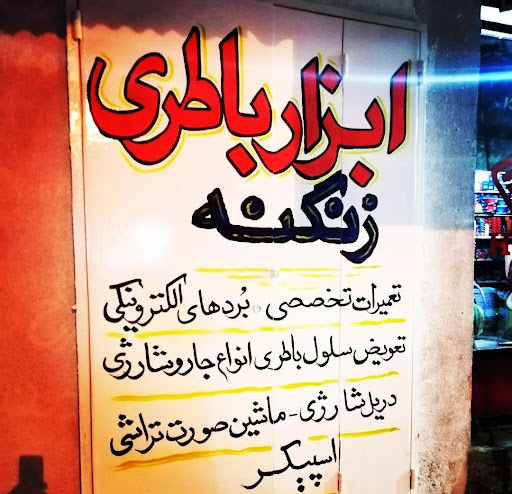 ابزار باطری
زنگنه
تعمیرات تخصصی. بُردهای الکترونیکی
تعویض سلول باطری انواع جارو شارژی
دریل شارژی - ماشین صورت تراشی
اسپیکر